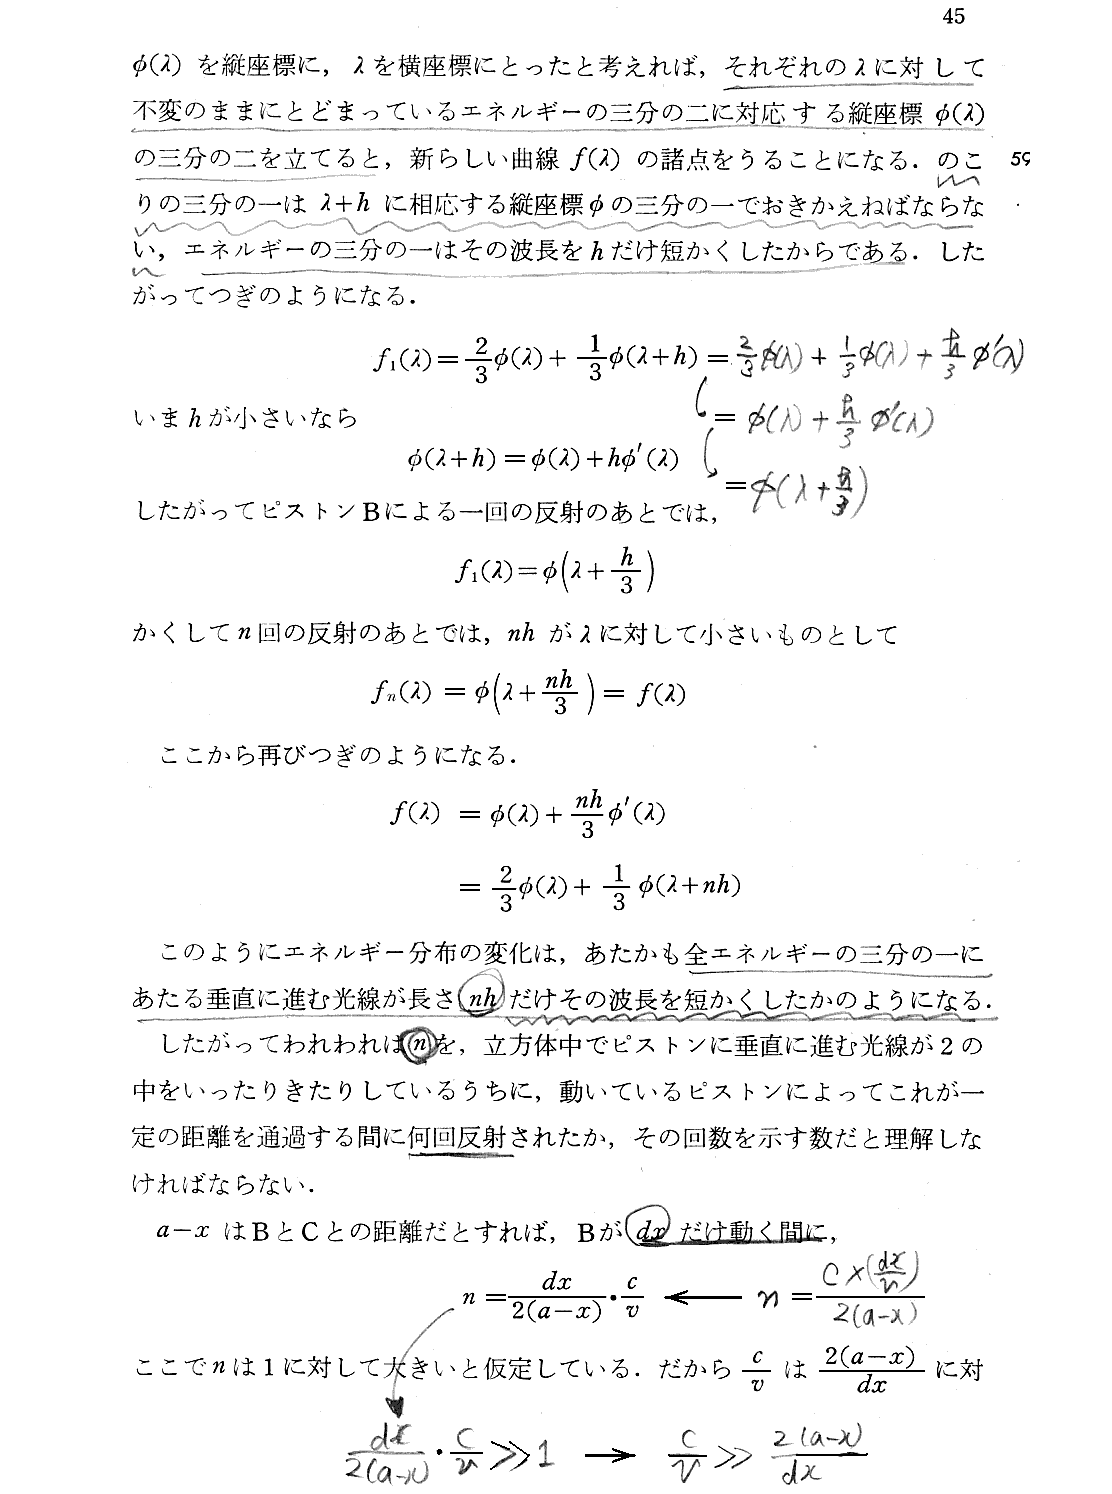 45
φ(λ) を縦座標に, λを横座標にとったと考えれば, それぞれのλに対して
不変のままにとどまっているエネルギーの三分の二に対応する縦座標 φ(λ)
の三分の二を立てると, 新らしい曲線 f(λ) の諸点をうることになる. のこ 59
りの三分の一は λ+h に相応する縦座標φの三分の一でおきかえねばならな
い, エネルギーの三分の一はその波長をhだけ短かくしたからである. した
がってつぎのようになる.
f₁(λ)=2/3φ(λ)+1/3φ(λ+h) =2/3φ(λ)+1/3φ(λ)+h/3φ′(λ)
いまhが小さいなら =φ(λ)+h/3φ′(λ)
φ(λ+h)=φ(λ)+hφ′(λ)
=φ(λ+h/3)
したがってピストンBによる一回の反射のあとでは,
f₁(λ)=φ(λ+h/3)
かくしてn回の反射のあとでは, nh がλに対して小さいものとして
fₙ(λ) = φ(λ+nh/3) = f(λ)
ここから再びつぎのようになる.
f(λ) = φ(λ)+nh/3φ′(λ)
= 2/3φ(λ)+1/3φ(λ+nh)
このようにエネルギー分布の変化は, あたかも全エネルギーの三分の一に
あたる垂直に進む光線が長さnhだけその波長を短かくしたかのようになる.
したがってわれわれはnを, 立方体中でピストンに垂直に進む光線が2の
中をいったりきたりしているうちに, 動いているピストンによってこれが一
定の距離を通過する間に何回反射されたか, その回数を示す数だと理解しな
ければならない.
a−x はBとCとの距離だとすれば, Bがdxだけ動く間に,
n=dx/2(a−x)・c/v ← n=C×(dx/v)/2(a-x)
ここでnは1に対して大きいと仮定している. だから c/v は 2(a−x)/dx に対
dx/2(a-x)・C/v≫1 → C/v≫2(a-x)/dx